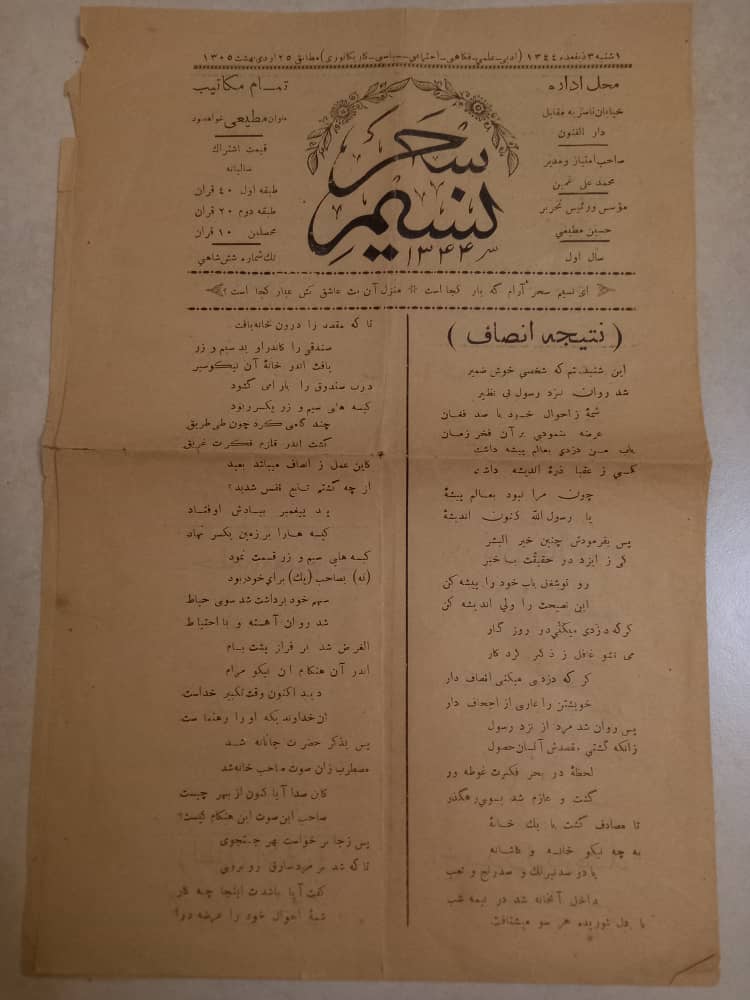 ۱ شنبه ۳ ذیقعده ۱۳٤٤ (ادبی_علمی_فکاهی_اجتماعی_سیاسی_کاریکاتوری) مطابق ۲۵ اردی بهشت ۱۳۰۵
محل اداره
خیابان ناصریه مقابل
دار الفنون
صاحب امتیاز و مدیر
محمد علی ثمین
مؤسس و رئیس تحریر
حسین مطیعی
سال اول
نسیم سحر
۱۳۴۴
تمام مکاتیب
بعنوان مطیعی خواهد بود
قیمت اشتراک
سالیانه
طبقه اول ٤۰ قران
طبقه دوم ۲۰ قران
محصلین ۱۰ قران
تک شماره شش شاهی
ای نسیم سحر آرام گه یار کجا است منزل آن مه عاشق کش عیار کجا است ؟
( نتیجه انصاف )
این شنیدستم که شخصی خوش ضمیر
شد روان نزد رسول بی نظیر
شمهٔ ز احوال خود با صد فغان
عرضه بنمودی بر آن فخر زمان
باب من دزدی بعالم پیشه داشت
کمی ز عقبا ذرهٔ اندیشه داشت
چون مرا نبود بعالم پیشهٔ
یا رسول الله کنون اندیشهٔ
پس بفرمودش چنین خیر البشر
کی ز ایزد در حقیقت با خبر
رو تو شغل باب خود را پیشه کن
این نصیحت را ولی اندیشه کن
گر که دزدی میکنی در روز گار
می نشو غافل ز ذکر کرد کار
گر که دزدی میکنی انصاف دار
خویشتن را عاری از اجحاف دار
پس روان شد مرد از نزد رسول
زانکه گشتی مقصدش آنسان حصول
لحظهٔ در بحر فکرت غوطه ور
گشت و عازم شد بسوی رهگذر
تا مصادف گشت با یک خانهٔ
به چه نیکو خانه و کاشانه
با دو صد نیرنگ و صد رنج و تعب
داخل آنخانه شد در نیمه شب
با دل شوریده هر سو میشتافت
تا که مقصد را درون خانه یافت
صندقی را کاندراو بد سیم و زر
یافت اندر خانهٔ آن نیکوسیر
درب صندوق را بآرامی گشود
کیسه های سیم و زر یکسر ربود
چند گامی کرد چون طی طریق
گشت اندر قلزم فکرت غریق
کاین عمل ز انصاف میباشد بعید
از چه گشتم تابع نفس شدید ؟
پند پیغمبر بیادش اوفتاد
کیسه هارا بر زمین یکسر نهاد
کیسه هایی سیم و زر قسمت نمود
(نه) بصاحب (یک) برای خود ربود
سهم خود برداشت شد سوی حیاط
شد روان آهسته و با احتیاط
الغرض شد بر فراز پشت بام
اندر آن هنکام آن نیکو مرام
دید اکنون وقت تکبیر خداست
آن خداوندیکه او را رهنما ست
پس بذکر حضرت جانانه شد
مضطرب زان صوت صاحب خانه شد
کان صدا آیا کنون از بهر چیست
صاحب این صوت این هنکام کیست؟
پس زجا بر خواست بهر جستجوی
تا که شد بر مرد سارق رو بروی
گفت آیا باشدت اینجا چه کار
شمهٔ احوال خود را عرضه دار!